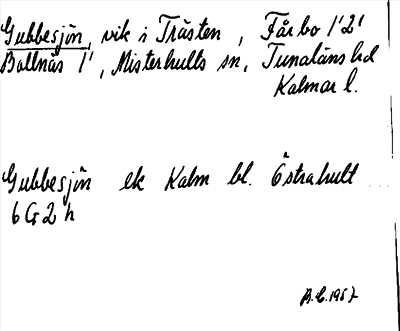 Gubbesjön, vik i Trästen, Fårbo 1'2'
Ballnäs 1', Misterhults sn, Tunaläns hd
Kalmar l.
Gubbesjön ek Kalm bl. Östrahult
6G2h
B.E.1967